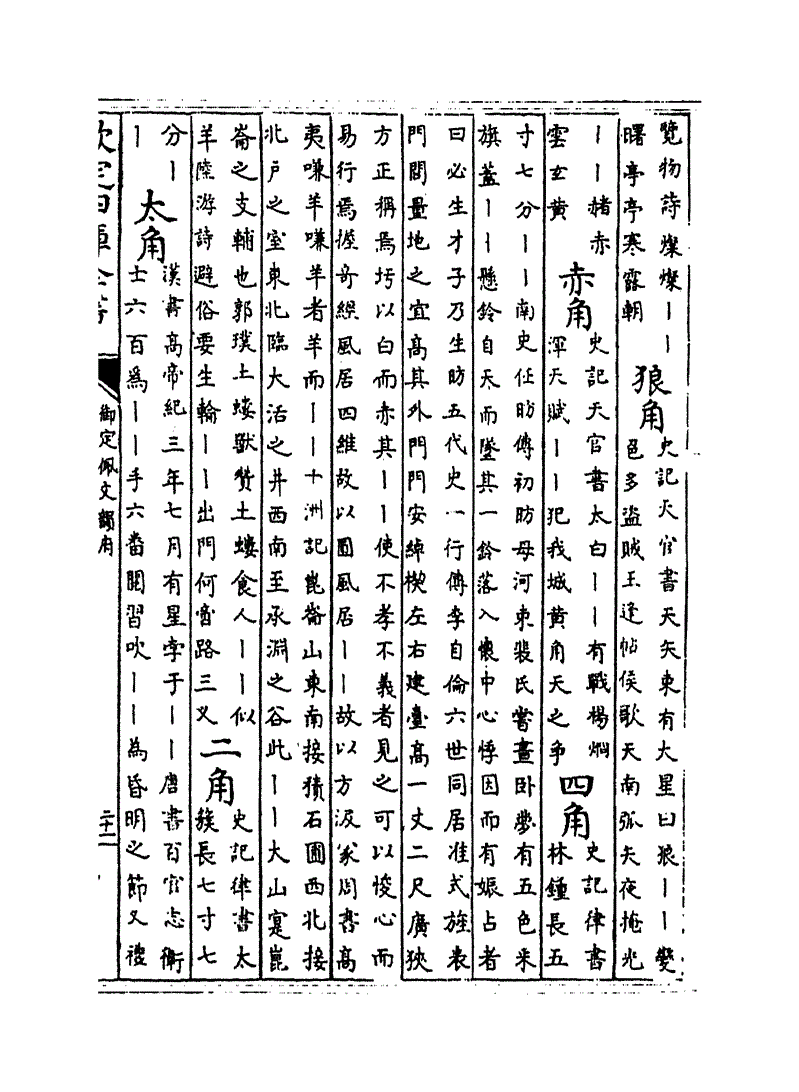 覽物詩燦燦丨丨
曙亭亭寒露朝
狼角
史記天官書天矢東有大星曰狼丨丨變
色多盜賊王逢帖侯歌天南弧矢夜掩光
丨丨赭赤
雲玄黄
赤角
史記天官書太白丨丨有戰楊烱
渾天賦丨丨犯我城黄角天之爭
四角
史記律書
林鍾長五
寸七分丨丨南史任昉傳初昉母河東裴氏嘗晝卧夢有五色采
旗蓋丨丨懸鈴自天而墜其一鈴落入懷中心悸因而有娠占者
曰必生才子乃生昉五代史一行傳李自倫六世同居准式旌表
門閭量地之宜高其外門門安綽楔左右建臺高一丈二尺廣狹
方正稱焉圬以白而赤其丨丨使不孝不義者見之可以悛心而
易行焉握奇經風居四維故以圓風居丨丨故以方汲冢周書高
夷嗛羊嗛羊者羊而丨丨十洲記崑崙山東南接積石圃西北接
北戶之室東北臨大活之井西南至承淵之谷此丨丨大山寔崑
崙之支輔也郭璞土螻獸贊土螻食人丨丨似
羊陸游詩避俗要生輪丨丨出門何啻路三叉
二角
史記律書太
簇長七寸七
分丨
丨
太角
漢書高帝紀三年七月有星孛于丨丨唐書百官志衛
士六百爲丨丨手六番閲習吹丨丨為昏明之節又禮
欽定四庫全書
御定佩文韻府
二十二